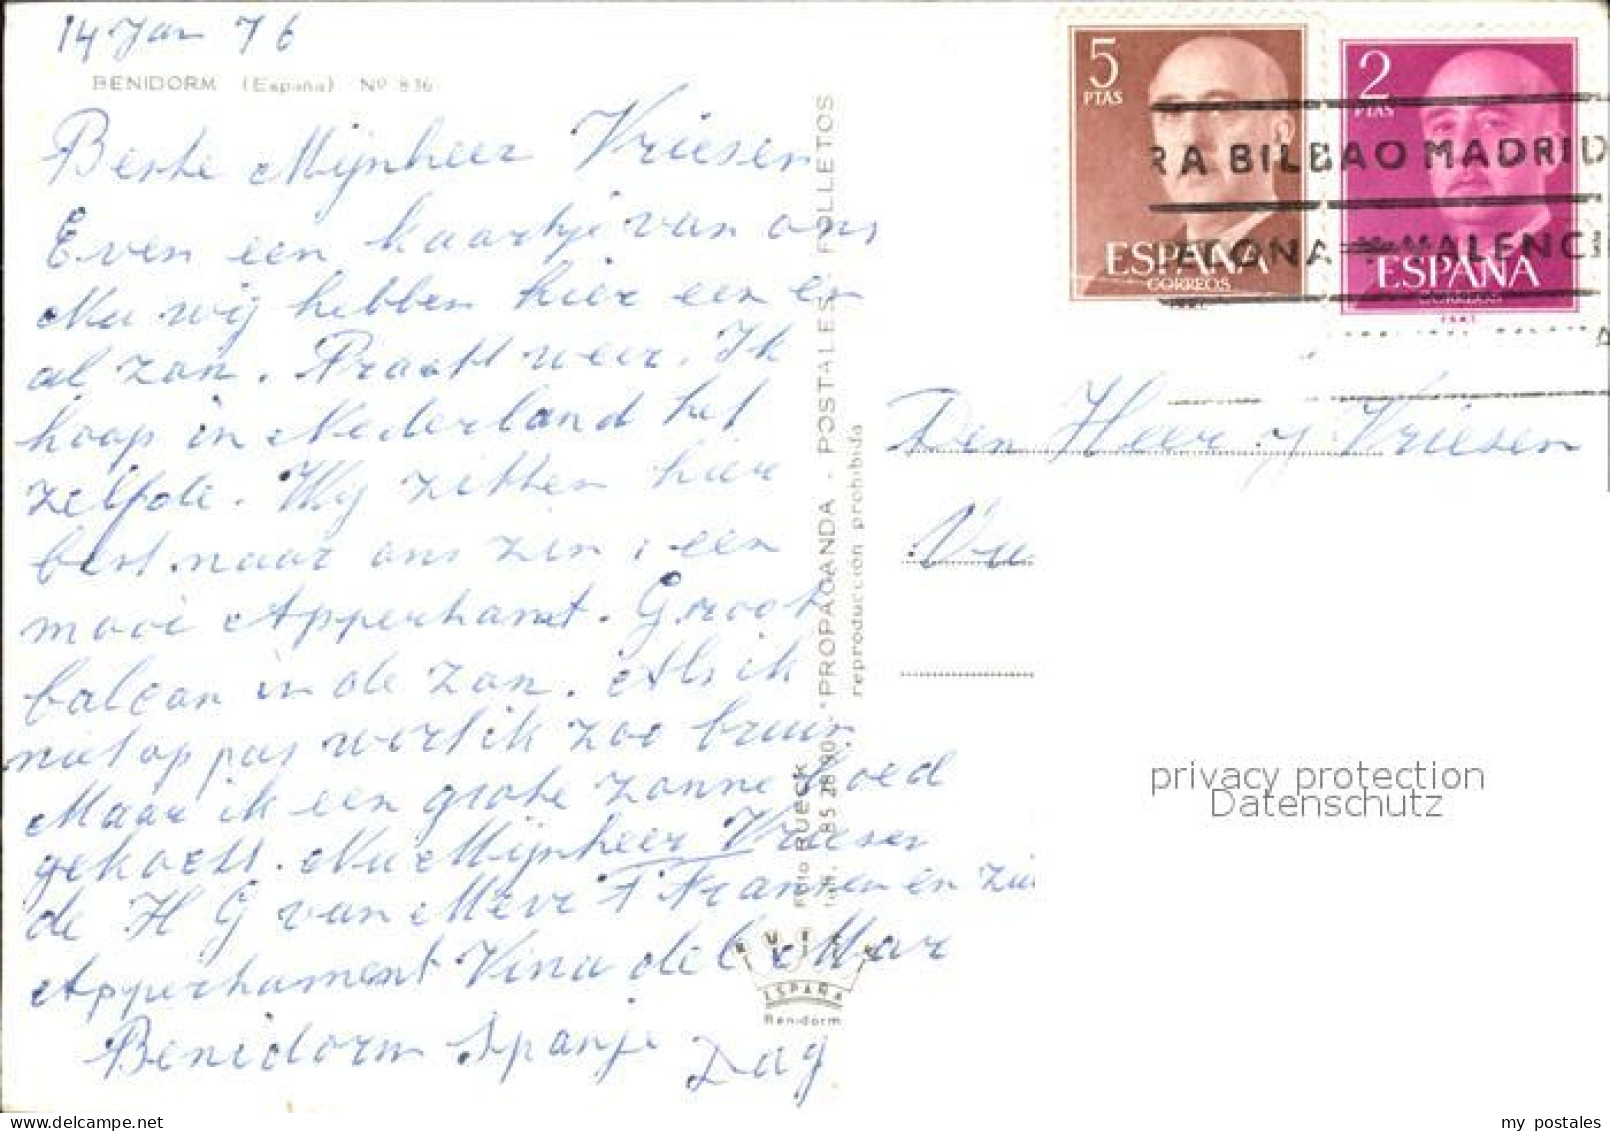 14 Jan 76
BENIDORM (España) Nº 836
Beste Mijnheer Vriesen
Even een kaartje van ons
Nu wij hebben hier een en
al zon. Pracht weer. Ik
hoop in Nederland het
zelfde. Wij zitten hier
best naar ons zin, een
mooi Apperhamt. Groot
balcon in de zon. Als ik
niet op pas wort ik zoo bruin
Maar ik een grote zonne hoed
gekocht. Nu Mijnheer Vriesen
de H G van Mevr F Franzen en
Apperhament Vina del Mar
Benidorm Spanje
Dag
Foto RUECK
"PROPAGANDA - POSTALES - FOLLETOS
reproducción prohibida
RUECK
ESPAÑA
Benidorm
5 PTAS
ESPAÑA
CORREOS
2 PTAS
ESPAÑA
CORREOS
RA BILBAO MADRID
ELONA VALENCI
Den Heer J Vriesen
privacy protection
Datenschutz
delcampe.net
my_postales